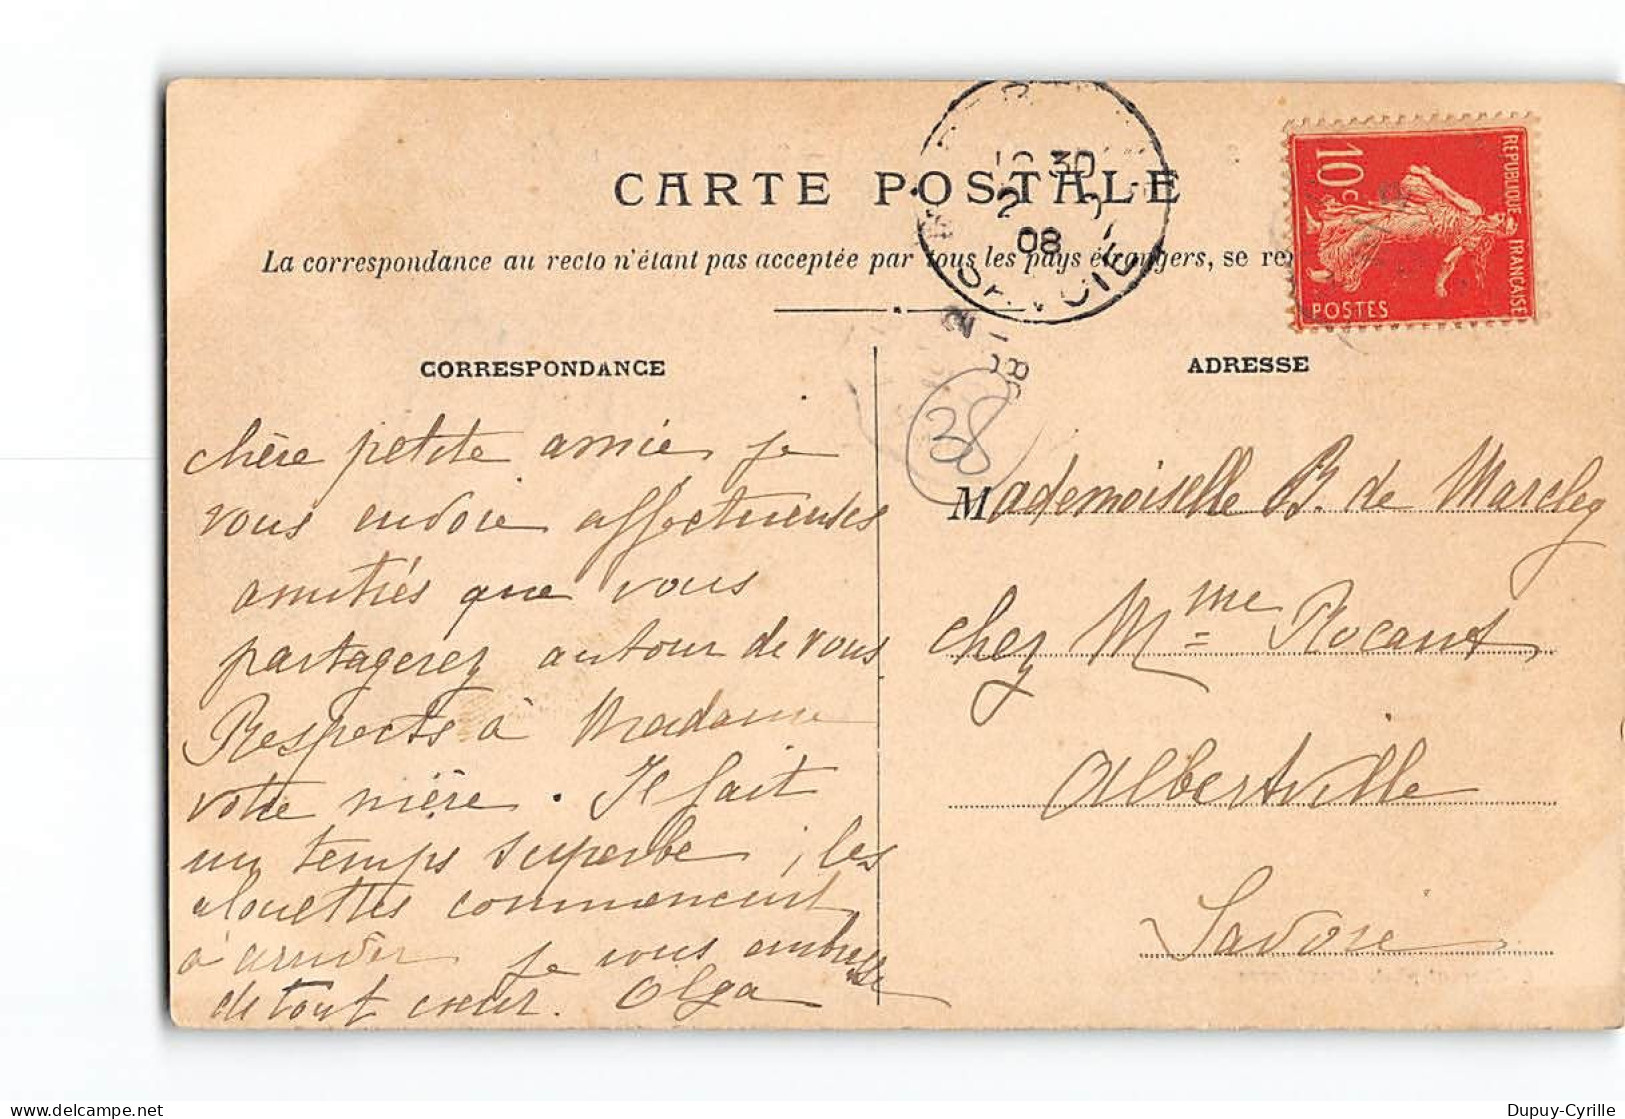 CARTE POSTALE
La correspondance au recto n'étant pas acceptée par tous les pays étrangers, se
10 30
2
08
SAVOIE
RÉPUBLIQUE FRANÇAISE
10c
POSTES
CORRESPONDANCE
chère petite amie je
vous envoie affectueuses
amitiés que vous
partagerez autour de vous
Respects à Madame
votre mère. Il fait
un temps superbe, les
alouettes commencent
à arriver je vous embrasse
de tout cœur. Olga
38
ADRESSE
Mademoiselle B. de Marcley
chez Mme Rocant
Albertville
Savoie
Dupuy-Cyrille